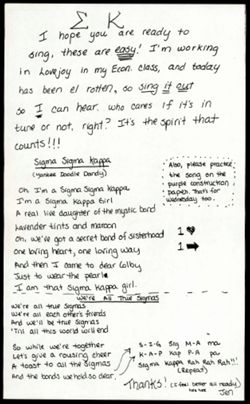 Σ K
I hope you are ready to
sing, these are easy! I'm working
in Lovejoy in my Econ. class, and today
has been el rotten, so sing it out
so I can hear. who cares if it's in
tune or not, right? It's the spirit that
counts!!!
Sigma Sigma Kappa
(Yankee Doodle Dandy)
Oh I'm a Sigma Sigma Kappa
I'm a Sigma Kappa Girl
A real live daughter of the mystic bond
Lavender tints and maroon
Oh, we've got a secret band of sisterhood
One loving heart, one loving way
And then I came to dear Colby
Just to wear the pearl
I am that Sigma Kappa girl.
Also, please practice
the song on the
purple construction
paper. That's for
Wednesday too.
1 ♥
1 ➡
We're All True Sigmas
We're all true Sigmas
We're all each other's friends
And we'll be true Sigmas
'Till all this world will end
So while we're together
Let's give a rousing cheer
A toast to all the Sigmas
And the bonds we hold so dear.
S-I-G Sig M-A ma
K-A-P Kap P-A pa
Sigma Kappa Rah Rah Rah!!!
(Repeat)
Thanks! (I feel better all ready)
Jen